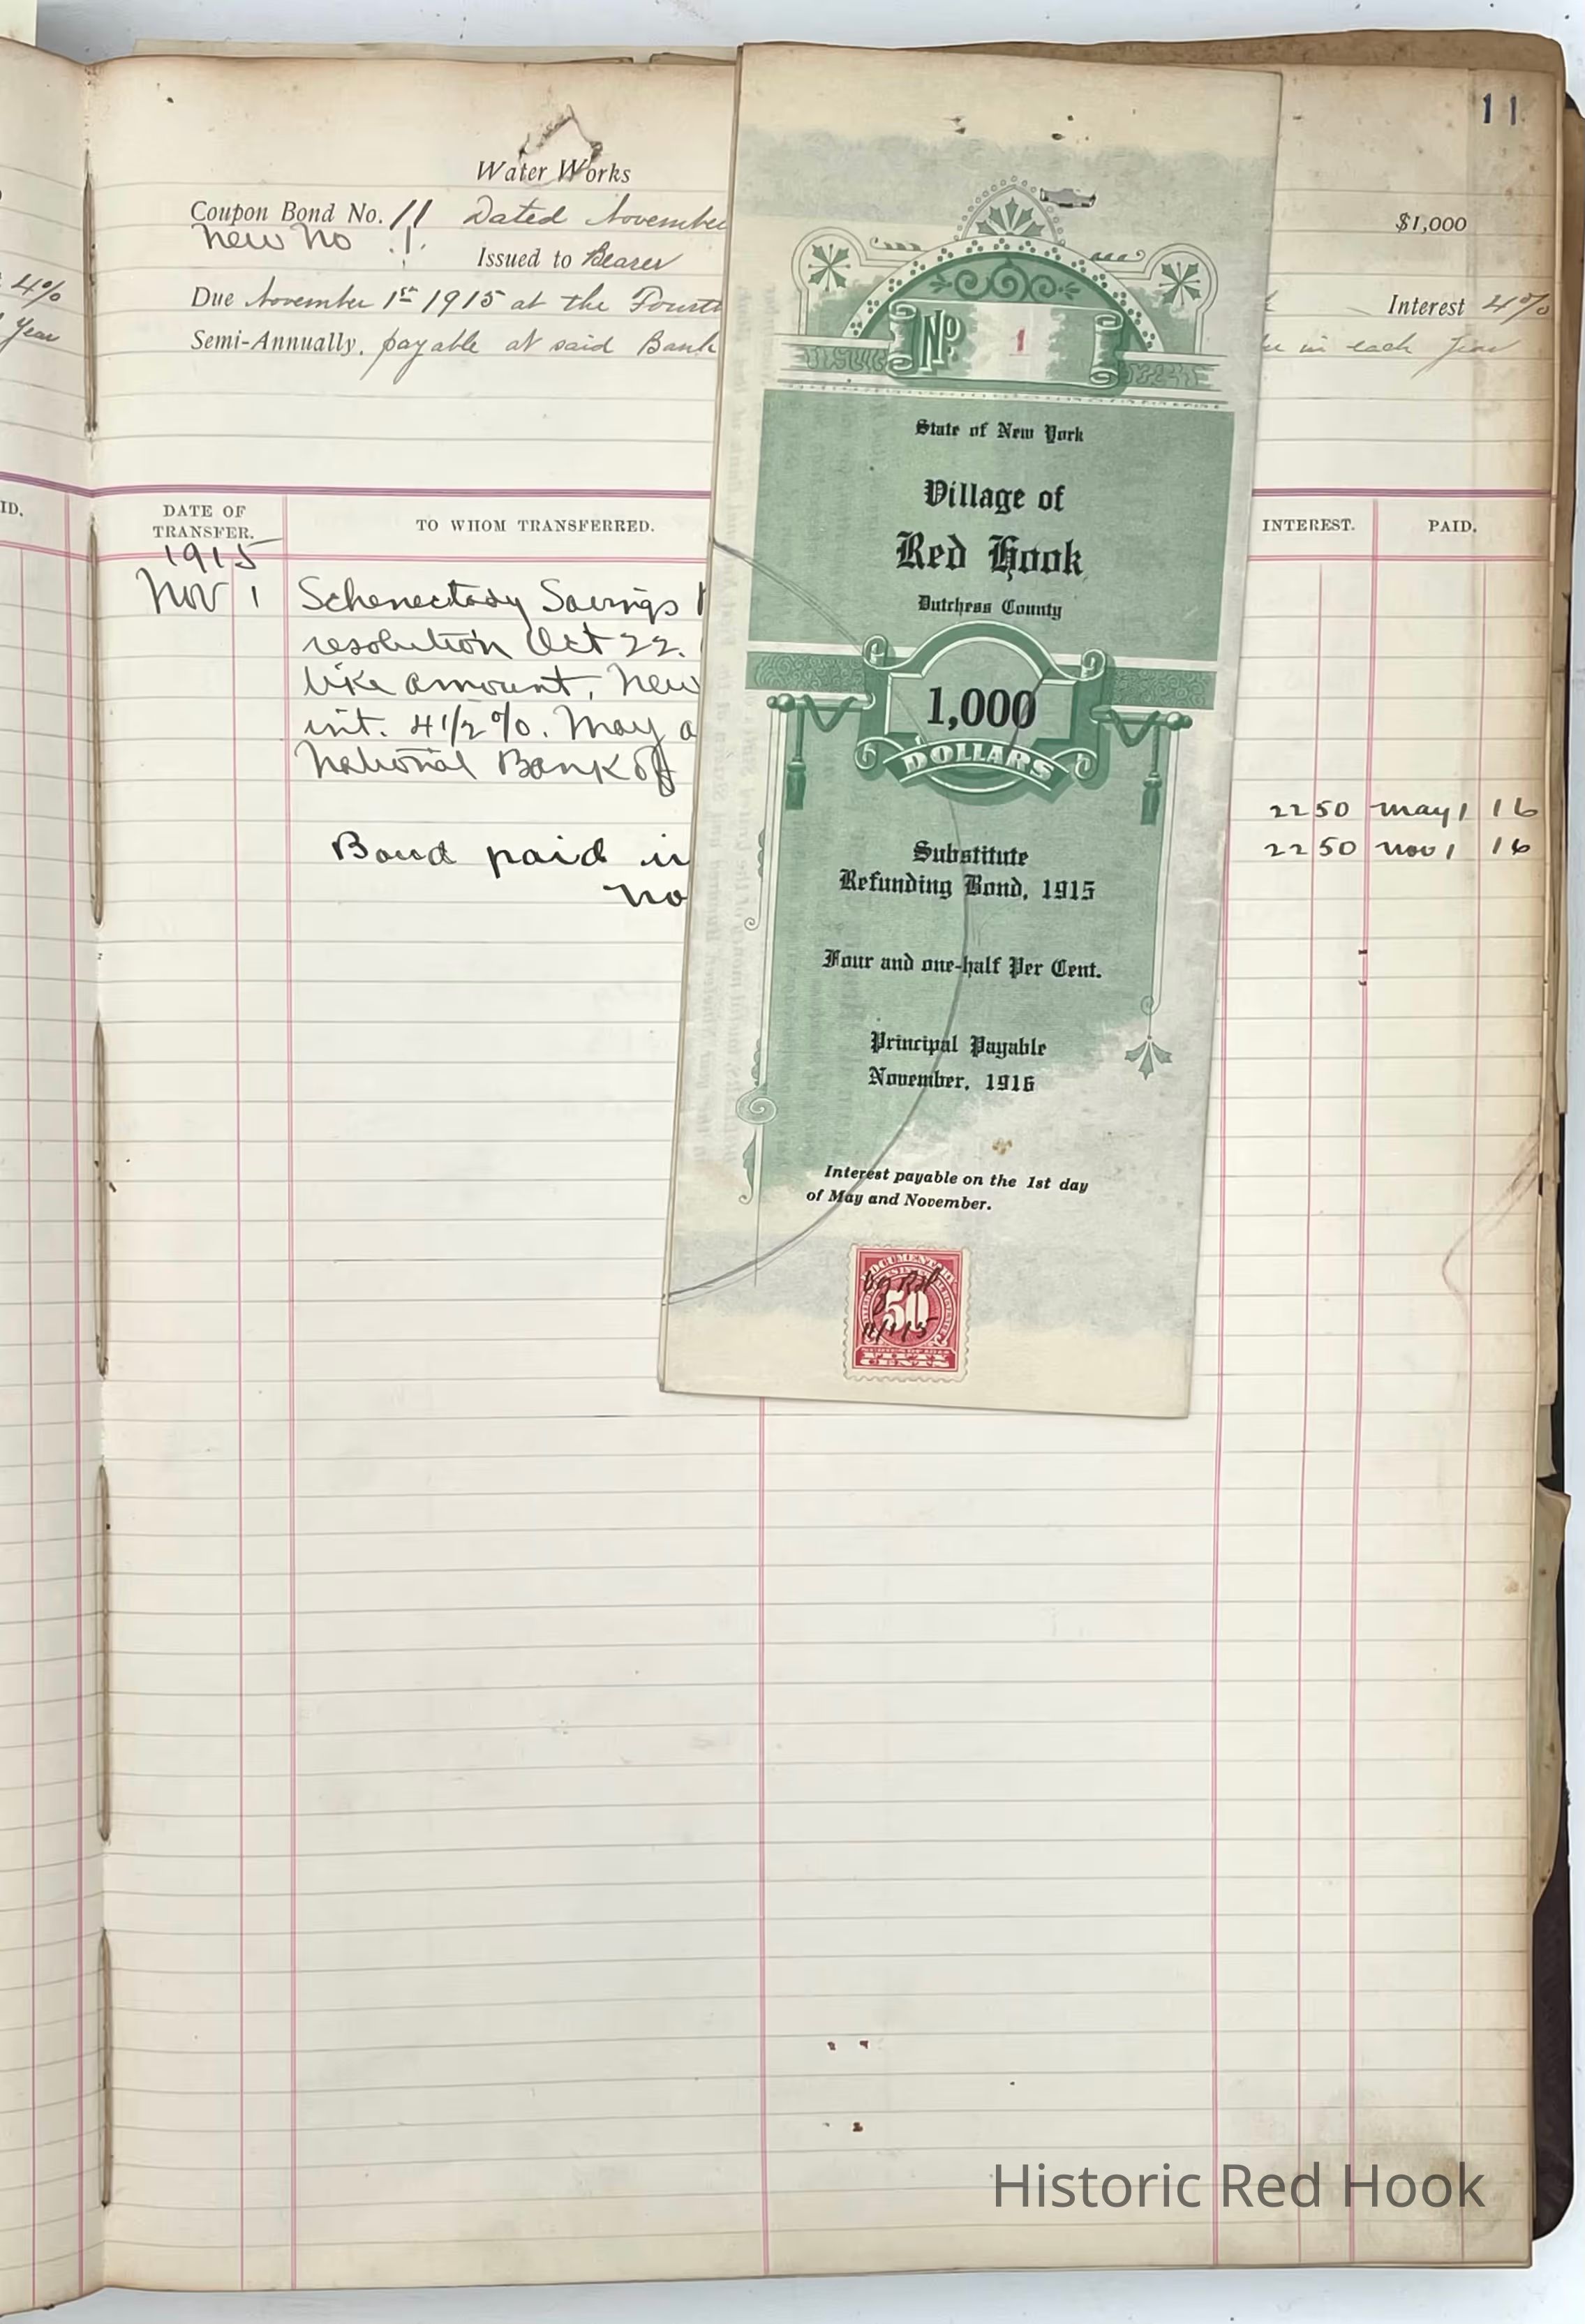 11
Water Works
Coupon Bond No. 11 Dated November
$1,000
New No 1.
Issued to Bearer
4%
Due November 1st 1915 at the Fourth
Interest 4%
Year
Semi-Annually, payable at said Bank
in each Year
ID.
DATE OF TRANSFER.
TO WHOM TRANSFERRED.
INTEREST.
PAID.
1915
Nov 1 Schenectady Savings
resolution Oct 22.
like amount, New
int. 4 1/2 %. May
National Bank of
22 50 May 1 16
Bond paid
22 50 Nov 1 16
No
No 1
State of New York
Village of
Red Hook
Dutchess County
1,000
DOLLARS
Substitute
Refunding Bond, 1915
Four and one-half Per Cent.
Principal Payable
November, 1916
Interest payable on the 1st day
of May and November.
DOCUMENTARY
50
11/1/15
CENTS
Historic Red Hook